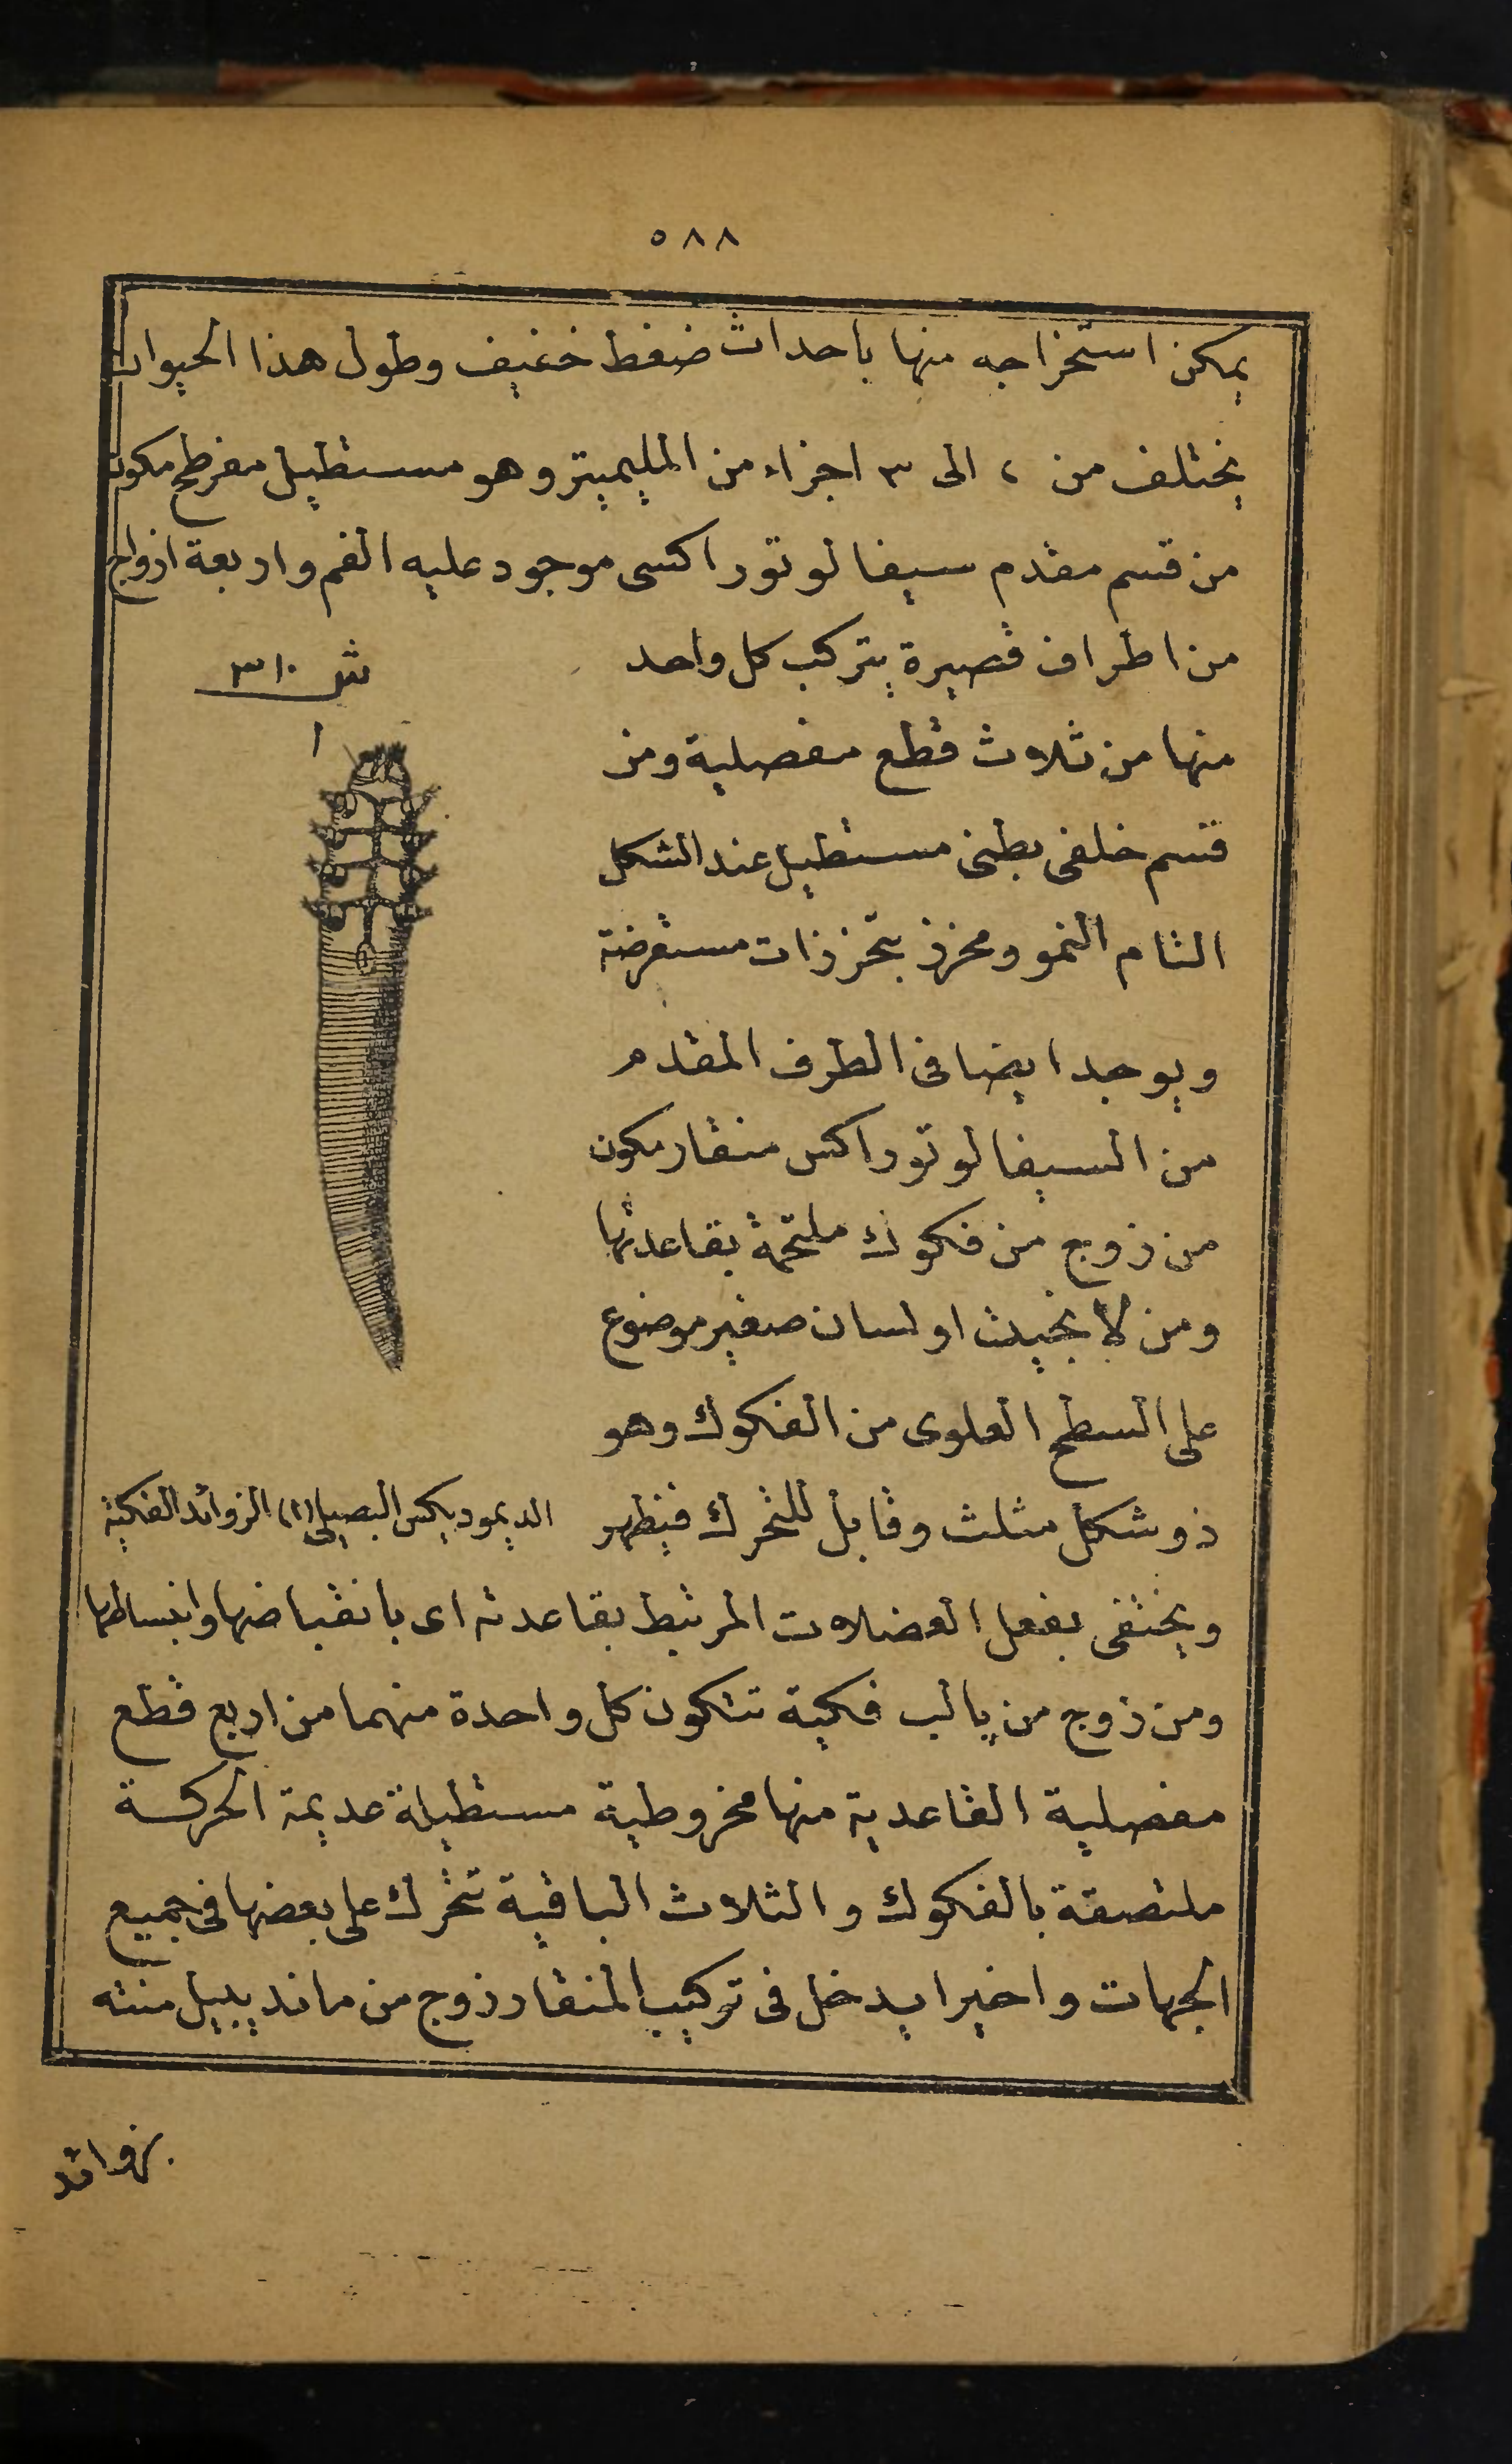 ٥٨٨
يمكن استخراجه منها باحداث ضغط خفيف وطول هذا الحيوان
يختلف من ٢ الى ٣ اجزاء من المليميتر وهو مستطيل مفرطح مكون
من قسم مقدم سيفالوتوراكسى موجود عليه الفم واربعة ازواج
من اطراف قصيرة يتركب كل واحد
منها من ثلاث قطع مفصلية ومن
قسم خلفى بطنى مستطيل عند الشكل
التام النمو ومحزز بتحززات مستعرضة
ويوجد ايضا فى الطرف المقدم
من السيفالوتوراكس منقار مكون
من زوج من فكوك ملتحمة بقاعدتها
ومن لانجيت او لسان صغير موضوع
على السطح العلوى من الفكوك وهو
ذو شكل مثلث وقابل للتحرك فيظهر
ش ٣١٠
ا
الديموديكس البصيلى (ا) الزوائد الفكية
ويختفى بفعل العضلات المرتبط بقاعدته اى بانقباضها وانبساطها
ومن زوج من پالب فكية تتكون كل واحدة منهما من اربع قطع
مفصلية القاعدية منها مخروطية مستطيلة عديمة الحركة
ملتصقة بالفكوك والثلاث الباقية تتحرك على بعضها فى جميع
الجهات واخيرا يدخل فى تركيب المنقار زوج من مانديبيل منته
بزوائد